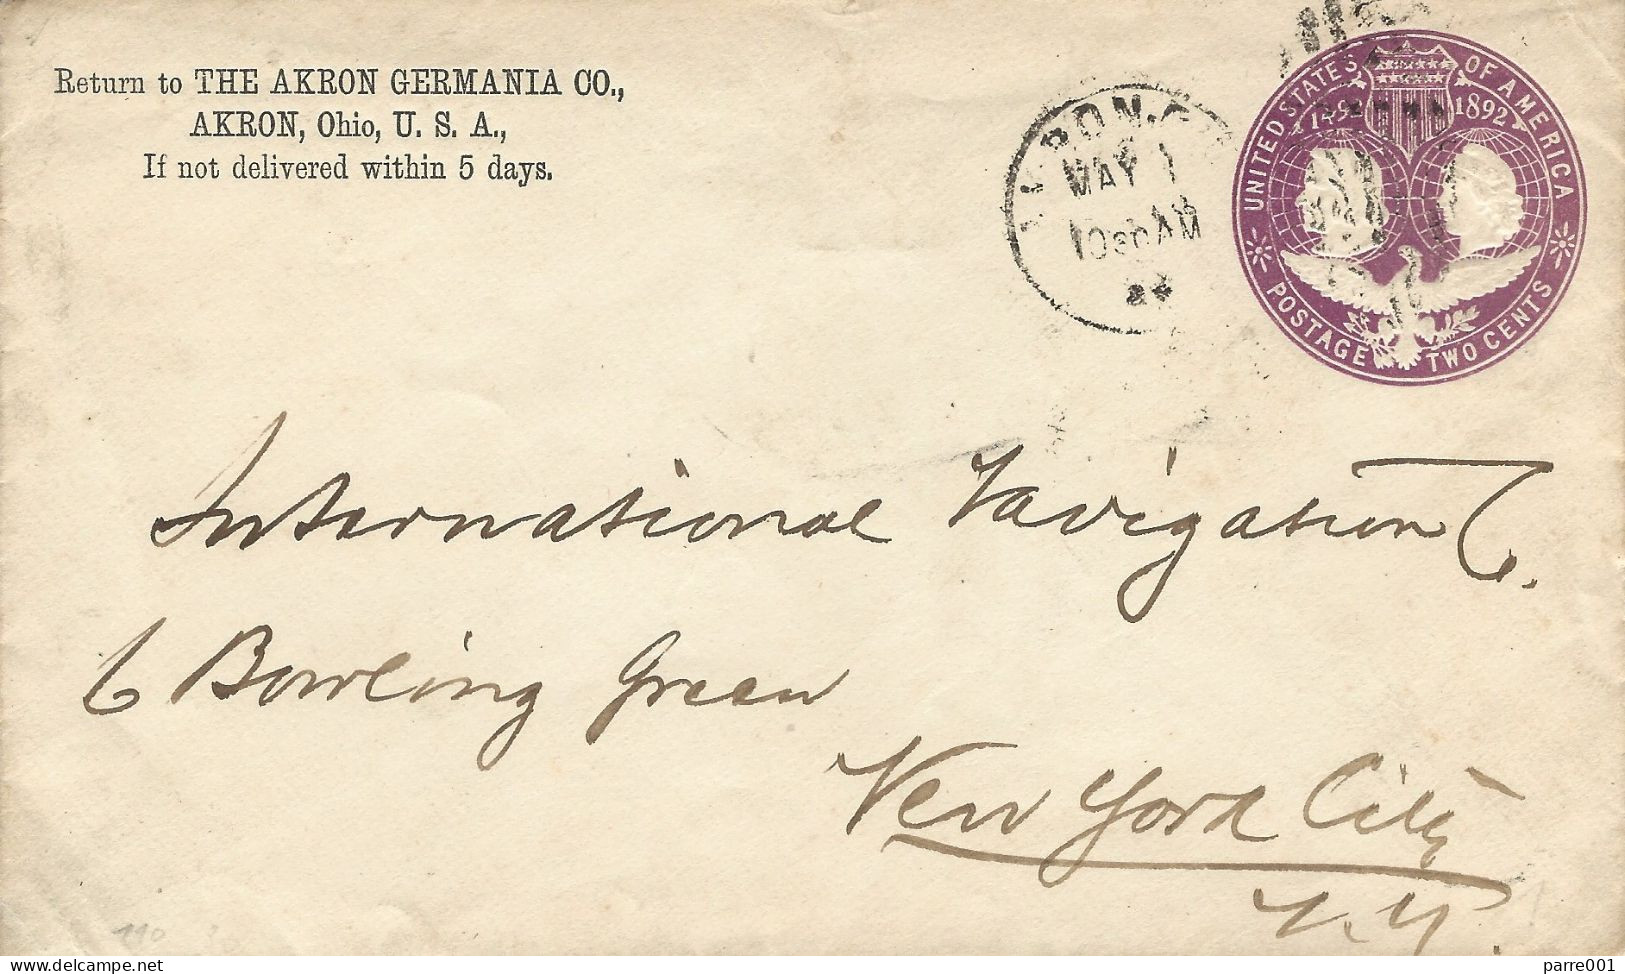 Return to THE AKRON GERMANIA CO.,
AKRON, Ohio, U. S. A.,
If not delivered within 5 days.
MAY 1
1030 AM
UNITED STATES OF AMERICA
1492 1892
POSTAGE TWO CENTS
International Navigation Co.
6 Bowling Green
New York City
N.Y.
110
delcampe.net
parre001